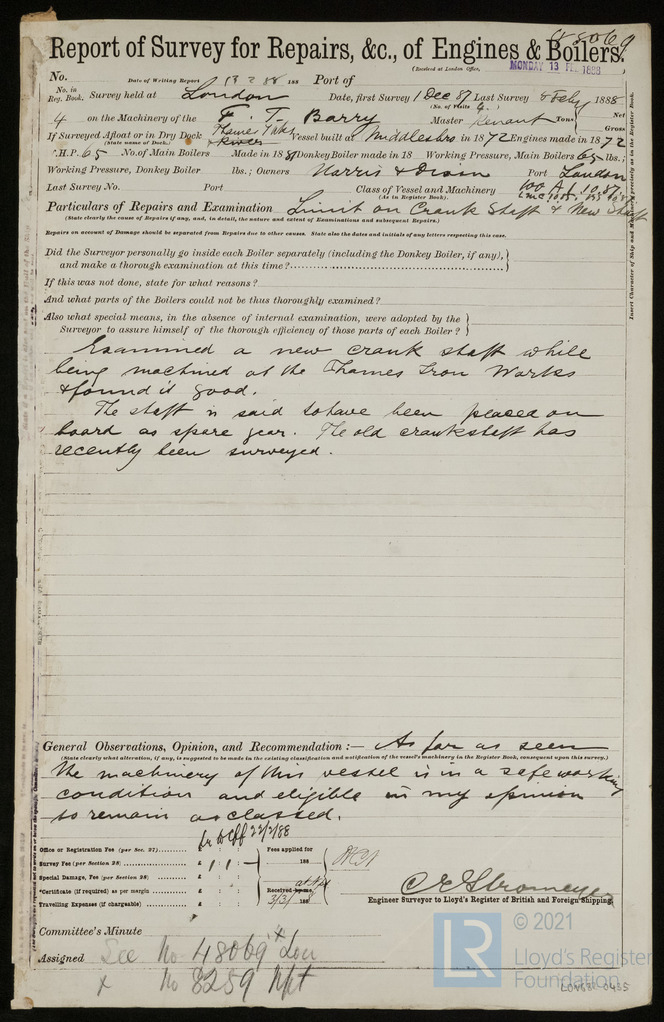 48069
Report of Survey for Repairs, &c., of Engines & Boilers.
(Received at London Office, MONDAY 13 FEB 1888
No. Date of Writing Report 13 2 88 188 Port of
No. in Reg. Book. Survey held at London Date, first Survey 1 Dec 87 Last Survey 8 Feby 1888
(No. of Visits 4.)
4 on the Machinery of the F. T. Barry Master Tons Net Gross
If Surveyed Afloat or in Dry Dock Vessel built at Middlesbro in 1872 Engines made in 1872
(State name of Dock.)
N.H.P. 65 No. of Main Boilers Made in 1881 Donkey Boiler made in 18 Working Pressure, Main Boilers 65 lbs.;
Working Pressure, Donkey Boiler lbs.; Owners Harris & Dixon Port London
Last Survey No. Port Class of Vessel and Machinery 100 A1 10.87
(As in Register Book).
Particulars of Repairs and Examination Limit on Crank Shaft & New Shaft
(State clearly the cause of Repairs if any, and, in detail, the nature and extent of Examinations and subsequent Repairs.)
Repairs on account of Damage should be separated from Repairs due to other causes. State also the dates and initials of any letters respecting this case.
Did the Surveyor personally go inside each Boiler separately (including the Donkey Boiler, if any),
and make a thorough examination at this time?
If this was not done, state for what reasons?
And what parts of the Boilers could not be thus thoroughly examined?
Also what special means, in the absence of internal examination, were adopted by the
Surveyor to assure himself of the thorough efficiency of those parts of each Boiler?
Examined a new crank shaft while
being machined at the Thames Iron Works
& found it good.
The shaft is said to have been placed on
board as spare gear. The old crankshaft has
recently been surveyed.
General Observations, Opinion, and Recommendation:— As far as seen
(State clearly what alteration, if any, is suggested to be made in the existing classification and notification of the vessel's machinery in the Register Book, consequent upon this survey.)
the machinery of this vessel is in a safe working
condition and eligible in my opinion
to remain as classed.
22/2/88
Office or Registration Fee (per Sec. 27) £ : : Fees applied for
Survey Fee (per Section 28) £ 1 : 1 : — 188
Special Damage, Fee (per Section 28) £ : :
Certificate (if required) as per margin £ : : Received by me,
Travelling Expenses (if chargeable) £ : : 3/3/ 188
C E Stromeyer
Engineer Surveyor to Lloyd's Register of British and Foreign Shipping.
Committee's Minute
Assigned See No 48069 Lon
x No 8259 Npt
Insert Character of Ship and Machinery precisely as in the Register Book.
LR © 2021
Lloyd's Register
Foundation
LON631-0435